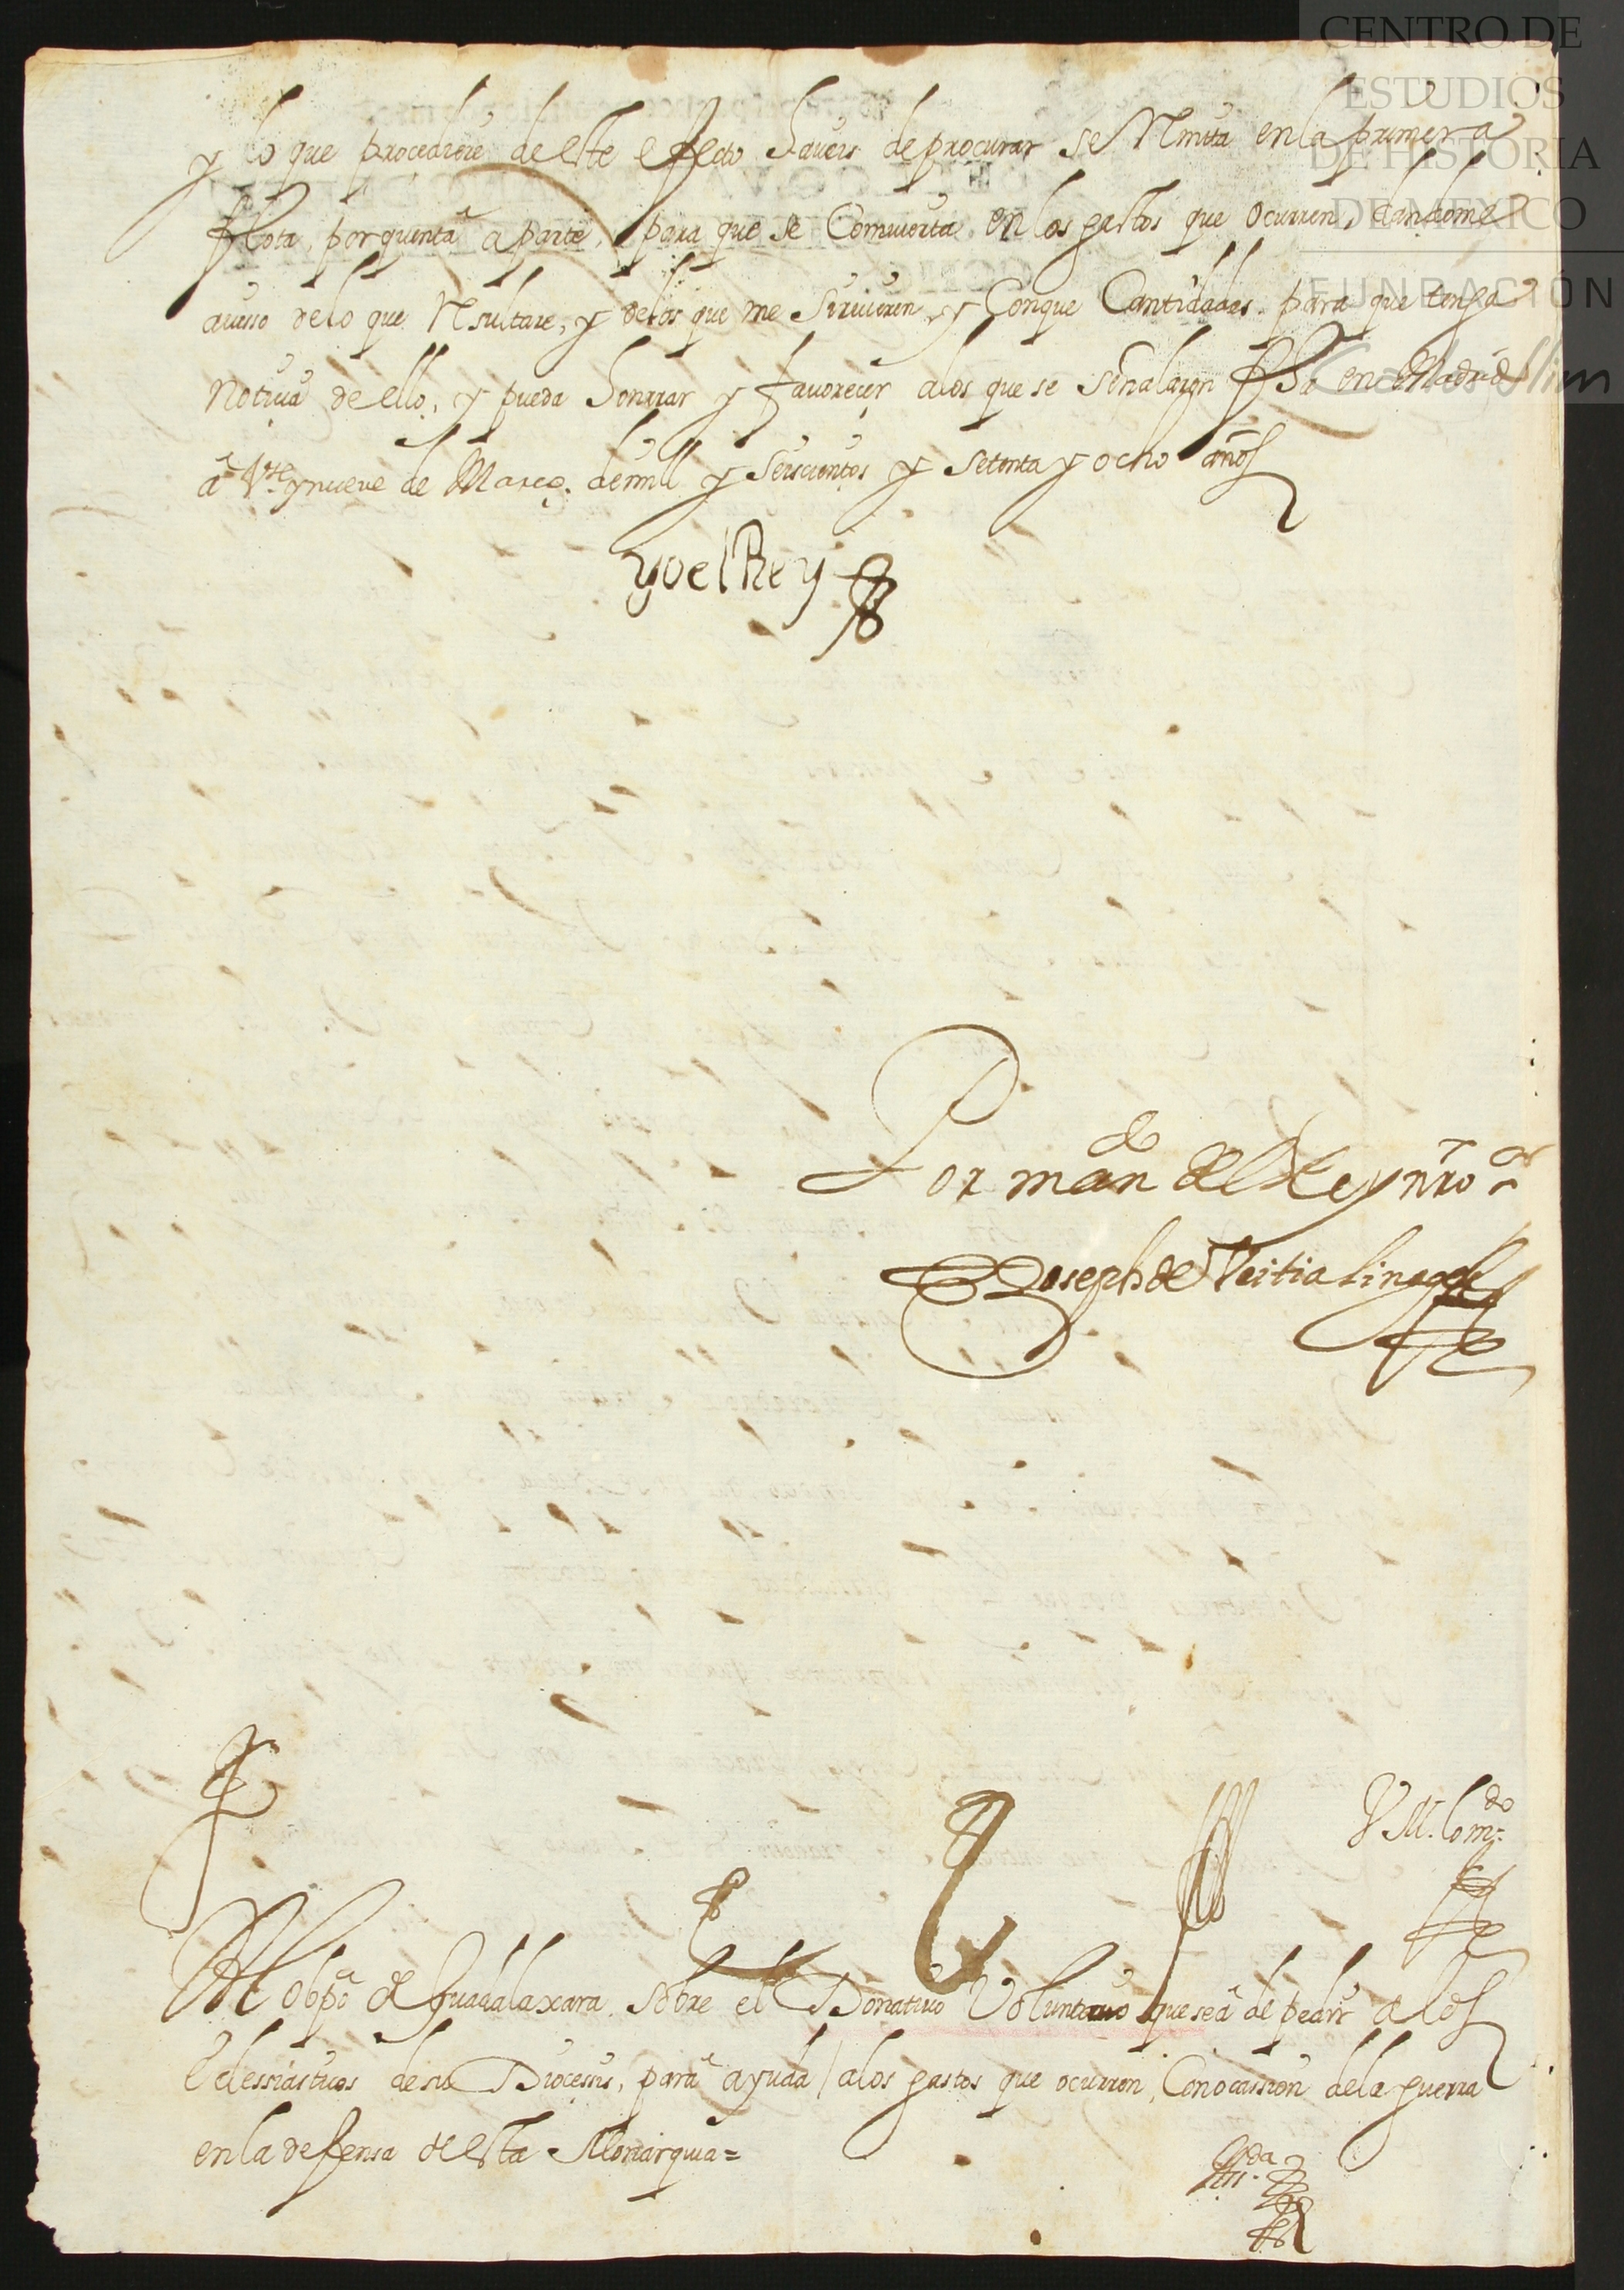 CENTRO DE
ESTUDIOS
DE HISTORIA
DE MEXICO
FUNDACIÓN
Carlos Slim
y lo que procediere deste efecto haueis de procurar se Rmita en la primera
flota, por quenta aparte, para que se Comuierta en los gastos que ocurren, dandome
auisso de lo que Rsultare, y de los que me Siruieren, y Conque Cantidades para que tenga
notiçia de ello, y pueda honrrar y fauoreçer a los que se señalaron fha en Madrid
a Vte y nueue de Março de mill y Seiscientos y setenta y ocho años
Yo el Rey
Por mando del Rey nro sr
Joseph de Veitia Linage
V M. Lomdo
Al obpo de Guadalaxara sobre el Donatiuo Voluntario que se a de pedir a los
Eclessiasticos de su Diocessis, para ayuda / a los gastos que ocurren, Con ocassion de la guerra
en la defensa de esta Monarquia =